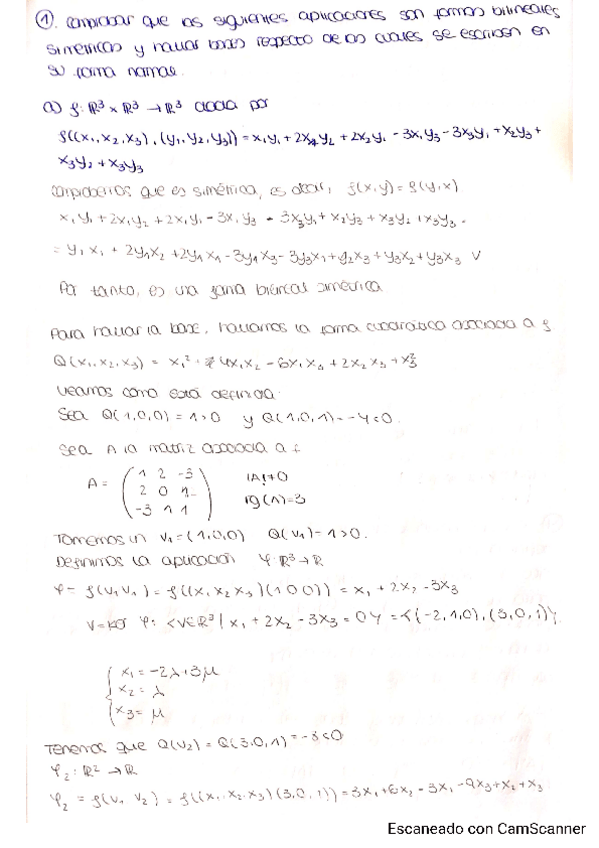 ①. Comprobar que las siguientes aplicaciones son formas bilineales
simétricas y hallar bases respecto de las cuales se escriben en
su forma normal.
a) f: ℝ³ × ℝ³ → ℝ³ dada por
f((x₁, x₂, x₃), (y₁, y₂, y₃)) = x₁y₁ + 2x₁y₂ + 2x₂y₁ - 3x₁y₃ - 3x₃y₁ + x₂y₃ +
x₃y₂ + x₃y₃
Comprobemos que es simétrica, es decir, f(x,y) = f(y,x)
x₁y₁ + 2x₁y₂ + 2x₂y₁ - 3x₁y₃ - 3x₃y₁ + x₂y₃ + x₃y₂ + x₃y₃ =
= y₁x₁ + 2y₁x₂ + 2y₂x₁ - 3y₁x₃ - 3y₃x₁ + y₂x₃ + y₃x₂ + y₃x₃ √
Por tanto, es una forma bilineal simétrica
Para hallar la base, hallamos la forma cuadrática asociada a f
Q(x₁, x₂, x₃) = x₁² + 4x₁x₂ - 6x₁x₃ + 2x₂x₃ + x₃²
Veamos como está definida.
Sea Q(1,0,0) = 1 > 0 y Q(1,0,1) = -4 < 0.
Sea A la matriz asociada a f
A = ( 1 2 -3 |A| ≠ 0
2 0 1 rg(A) = 3
-3 1 1 )
Tomemos v₁ = (1,0,0) Q(v₁) = 1 > 0.
Definimos la aplicación φ: ℝ³ → ℝ
φ = f(v, v₁) = f((x₁ x₂ x₃)(1 0 0)) = x₁ + 2x₂ - 3x₃
V = Ker φ: {v ∈ ℝ³ | x₁ + 2x₂ - 3x₃ = 0} = <{(-2,1,0), (3,0,1)}
{ x₁ = -2λ + 3μ
x₂ = λ
x₃ = μ
Tenemos que Q(v₂) = Q(3,0,1) = -8 < 0
φ₂: ℝ² → ℝ
φ₂ = f(v, v₂) = f((x₁, x₂, x₃)(3,0,1)) = 3x₁ + 6x₂ - 3x₁ - 9x₃ + x₂ + x₃
Escaneado con CamScanner